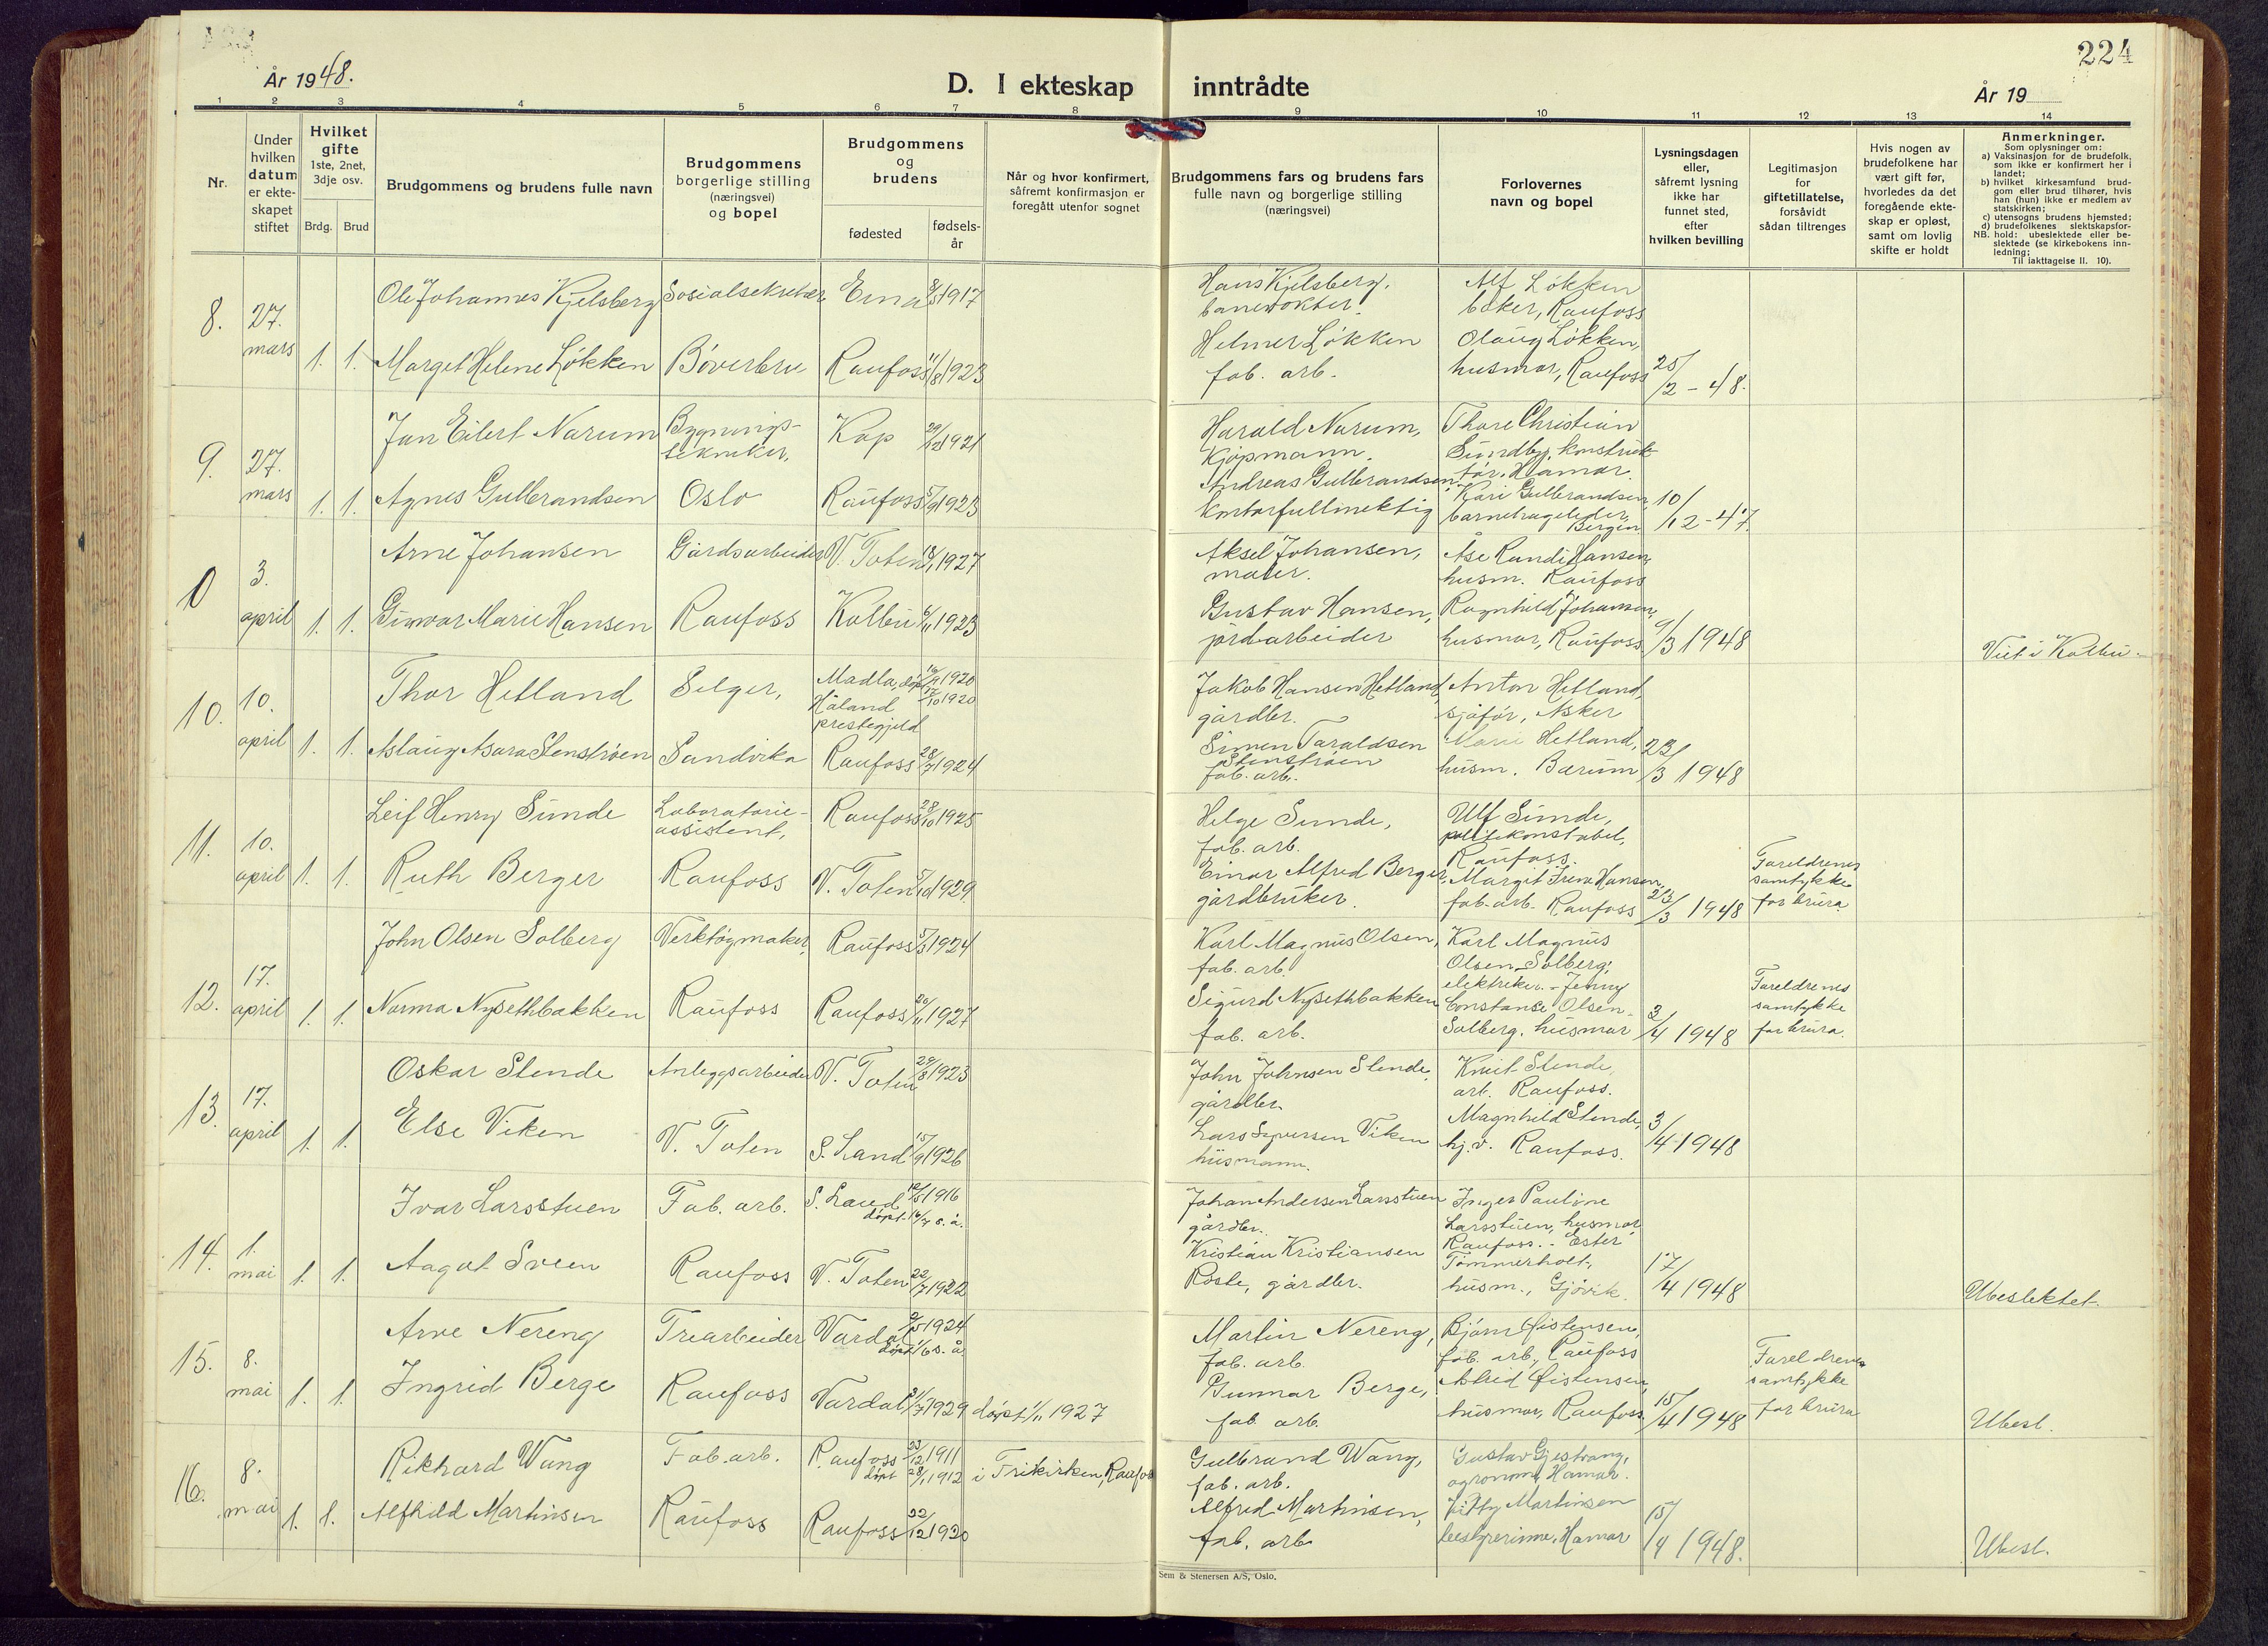 224
År 1948.
D. I ekteskap inntrådte
År 19
1 2 3 4 5 6 7 8 9 10 11 12 13 14
Nr.
Under hvilken datum er ekteskapet stiftet
Hvilket gifte 1ste, 2net, 3dje osv.
Brdg. Brud
Brudgommens og brudens fulle navn
Brudgommens borgerlige stilling (næringsvei) og bopel
Brudgommens og brudens
fødested
fødselsår
Når og hvor konfirmert, såfremt konfirmasjon er foregått utenfor sognet
Brudgommens fars og brudens fars fulle navn og borgerlige stilling (næringsvei)
Forlovernes navn og bopel
Lysningsdagen eller, såfremt lysning ikke har funnet sted, efter hvilken bevilling
Legitimasjon for giftetillatelse, forsåvidt sådan tiltrenges
Hvis nogen av brudefolkene har vært gift før, hvorledes da det foregående ekteskap er opløst, samt om lovlig skifte er holdt
Anmerkninger.
Som oplysninger om:
a) Vaksinasjon for de brudefolk, som ikke er konfirmert her i landet;
b) hvilket kirkesamfund brudgom eller brud tilhører, hvis han (hun) ikke er medlem av statskirken;
c) utensogns brudens hjemsted;
d) brudefolkenes slektskapsforhold: ubeslektede eller beslektede (se kirkebokens innledning;
NB.
Til iakttagelse II. 10).
8. 27. mars 1. 1.
Ole Johannes Kjelsberg Sosialsekretær Eina 1917
Hans Kjelsberg, banevokter.
Alf Løkken baker, Raufoss
Marget Helene Løkken Bøverbru Raufoss 11/8 1923
Helmer Løkken fab. arb.
Olaug Løkken, husmor, Raufoss
25/2 - 48.
9. 27. mars 1. 1.
Jan Eilert Narum Bygningstekniker, Kap 29/12 1921
Harald Narum, Kjøpmann.
Thore Christian Sundby, konstruktør, Hamar.
Agnes Gulbrandsen Oslo Raufoss 5/9 1923
Andreas Gulbrandsen, kontorfullmektig
Kari Gulbrandsen, barnehageleder, Bergen
10/12 - 47
0 3. april 1. 1.
Arne Johansen Gårdsarbeider V. Toten 18/1 1927
Aksel Johansen, maler.
Åse Randi Hansen, husm. Raufoss
Gunvor Marie Hansen Raufoss Kolbu 6/11 1923
Gustav Hansen, jordarbeider
Ragnhild Johansen, husmor, Raufoss.
9/3 1948
Viet i Kolbu.
10. 10. april 1. 1.
Thor Hetland Selger, Madla, døpt 16/9 1920 17/10 1920 Håland prestegjeld
Jakob Hansen Hetland, gårdbr.
Anton Hetland, sjåfør, Asker
Aslaug Asora Stenstrøen Sandvika Raufoss 28/7 1924
Simen Taraldsen Stenstrøen fab. arb.
Marie Hetland, husm. Bærum
23/3 1948
11. 10. april 1. 1.
Leif Henry Sunde Laboratorieassistent, Raufoss 28/10 1925
Helge Sunde, fab. arb.
Ulf Sunde, politikonstabel, Raufoss.
Ruth Berger Raufoss V. Toten 5/10 1929
Einar Alfred Berger, gårdbruker.
Margit Irene Hansen, fab.-arb. Raufoss
23/3 1948
Foreldrenes samtykke for brura.
12. 17. april 1. 1.
John Olsen Solberg Verktøymaker, Raufoss 5/3 1924
Karl Magnus Olsen, fab. arb.
Karl Magnus Olsen Solberg, elektriker. - Jenny Constanse Olsen-Solberg, husmor
Norma Nysethbakken Raufoss Raufoss 20/11 1927
Sigurd Nysethbakken fab. arb.
3/4 1948
Foreldrenes samtykke for brura.
13. 17. april 1. 1.
Oskar Stende Anleggsarbeider V. Toten 29/8 1923
John Johnsen Stende, gårdbr.
Knut Stende, arb. Raufoss.
Else Viken V. Toten S. Land 15/9 1926
Lars Syversen Viken husmann.
Magnhild Stende, hj.v. Raufoss.
3/4 1948
14. 1. mai 1. 1.
Ivar Larsstuen Fab. arb. S. Land 19/5 1916 døpt 16/7 s. å.
Johan Andersen Larsstuen gårdbr.
Inger Pauline Larsstuen, husmor, Raufoss. - Ester Tømmerholt, husm., Gjøvik.
Aagot Sveen Raufoss V. Toten 22/7 1922
Kristian Kristiansen Roste, gårdbr.
17/4 1948
Ubeslektet.
15. 8. mai 1. 1.
Arve Nereng Trearbeider Vardal 2/5 1924 døpt 1/6 s. å.
Martin Nereng, fab. arb.
Bjørn Øistensen, fab. arb., Raufoss
Ingrid Berge Raufoss Vardal 21/7 1929 døpt 1/11 1927
Gunnar Berge, fab. arb.
Astrid Øistensen, husmor, Raufoss
15/4 1948
Foreldrenes samtykke for brura
Ubesl.
16. 8. mai 1. 1.
Rikhard Wang Fab. arb. Raufoss 23/12 1911 døpt 28/1 1912 i Frikirken, Raufoss
Gulbrand Wang, fab. arb.
Gustav Gjestvang, agronom, Hamar.
Alfhild Martinsen Raufoss Raufoss 22/12 1920
Alfred Martinsen, fab. arb.
Martinsen bestyrerinne, Hamar
15/4 1948.
Ubesl.
Sem & Stenersen A/S, Oslo.